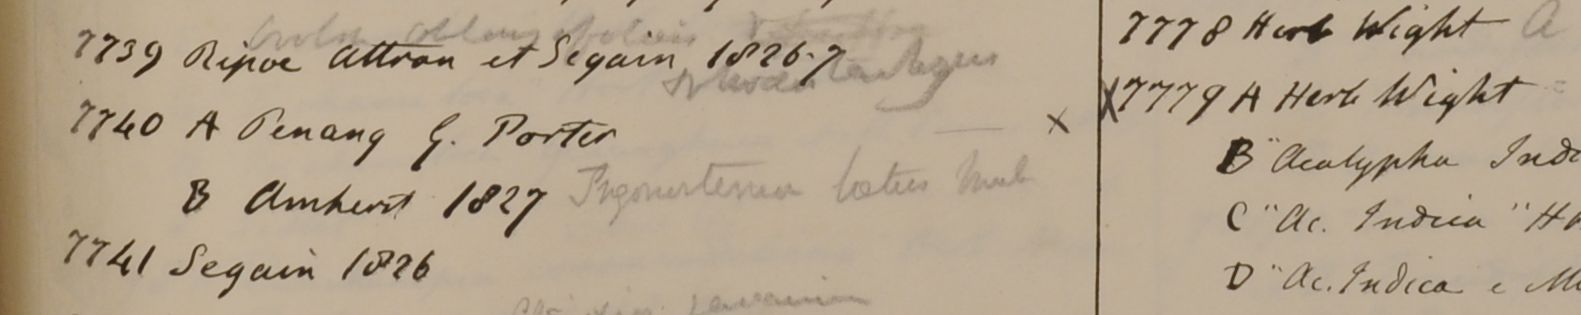 7739 Ripoe Attran et Segain 1826-7
7740 A Penang G. Porter
B Amherst 1827
7741 Segain 1826
7778 Herb Wight
X 7779 A Herb Wight
B "Acalypha Indi
C "Ac. Indica" H
D "Ac. Indica e M